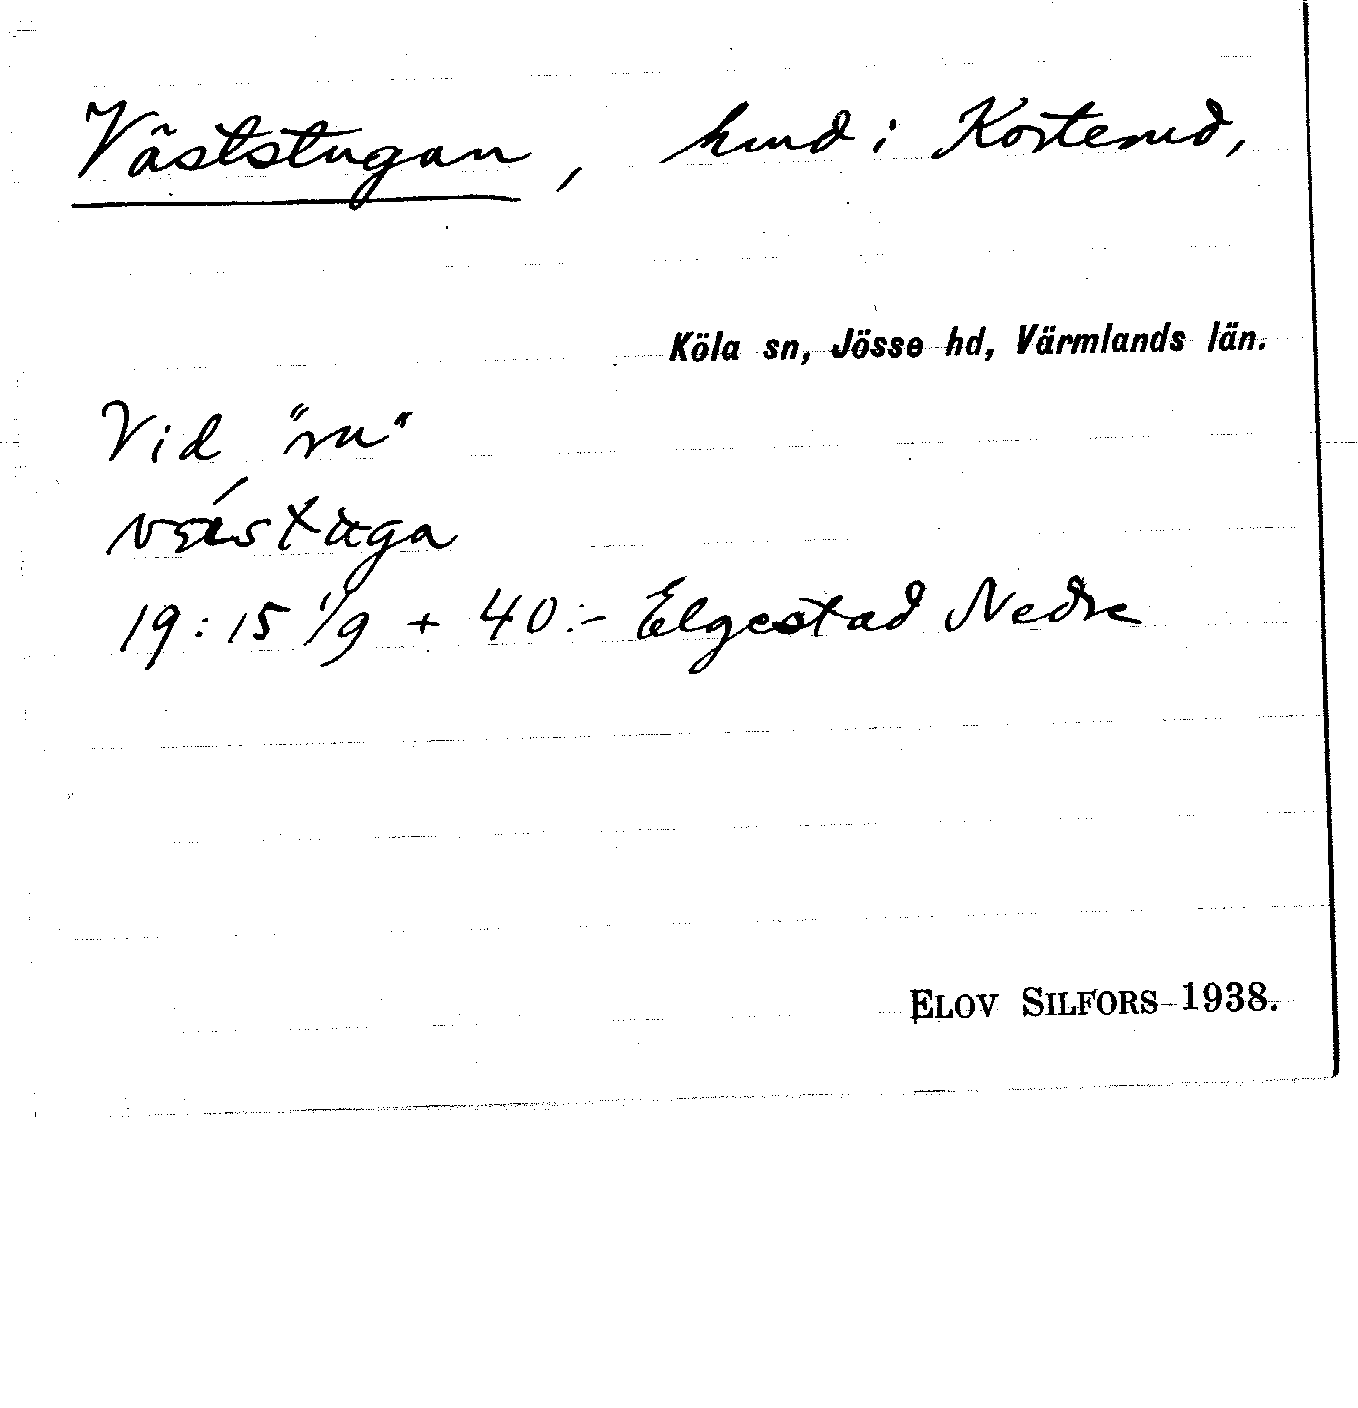 Väststugan, hmd i Korterud,
Köla sn, Jösse hd, Värmlands län.
Vid "ru"
19:15 1/9 + 40:- Elgestad Nedre
ELOV SILFORS 1938.